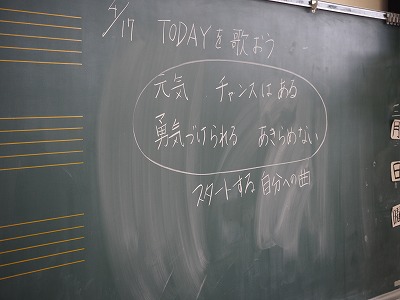 4/17 TODAYを歌おう
元気 チャンスはある
勇気づけられる あきらめない
スタートする自分への曲
月
日